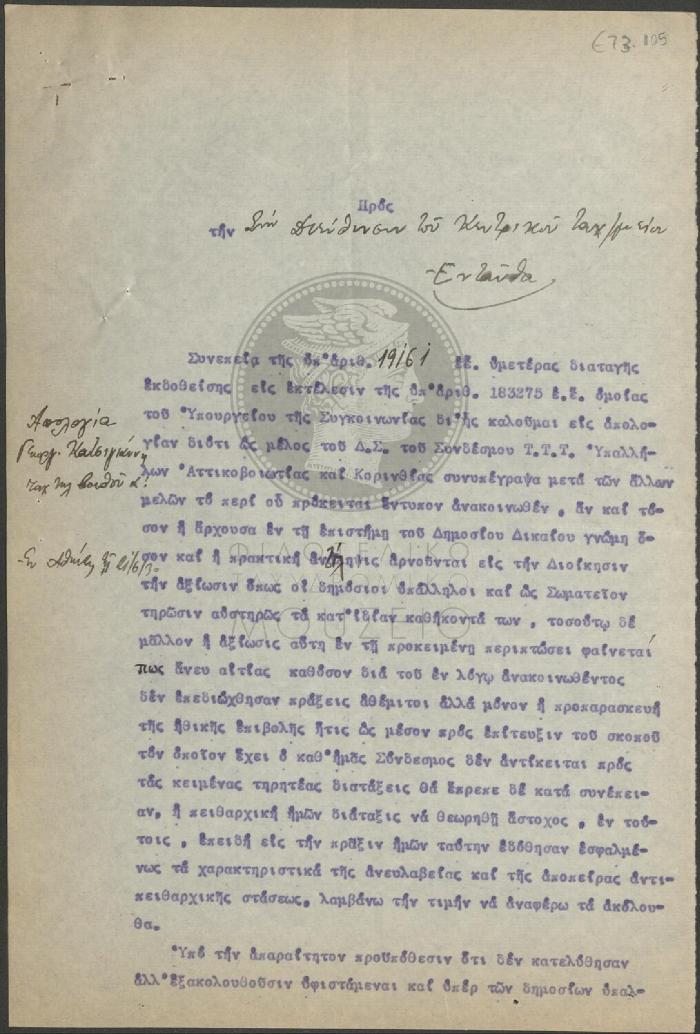 €73.105
Πρός
τήν Δ)σιν Διεύθυνσιν τοῦ Κεντρικοῦ Ταχ/μείου
Ἐνταῦθα
Συνεπείᾳ τῆς ὑπ'ἀριθ. 19161 ἐ.ἔ. ὑμετέρας διαταγῆς
ἐκδοθείσης εἰς ἐκτέλεσιν τῆς ὑπ'ἀριθ. 183275 ἐ.ἔ. ὁμοίας
τοῦ Ὑπουργείου τῆς Συγκοινωνίας δι'ἧς καλοῦμαι εἰς ἀπολο-
γίαν διότι ὡς μέλος τοῦ Δ.Σ. τοῦ Συνδέσμου Τ.Τ.Τ. Ὑπαλλή-
λων Ἀττικοβοιωτίας καί Κορινθίας συνυπέγραψα μετά τῶν ἄλλων
μελῶν τό περί οὗ πρόκειται ἔντυπον ἀνακοινωθέν, ἄν καί τό-
σον ἡ ἄρχουσα ἐν τῇ ἐπιστήμῃ τοῦ Δημοσίου Δικαίου γνώμη ὅ-
σον καί ἡ πρακτική ἀντίληψις ἀρνοῦνται εἰς τήν Διοίκησιν
τήν ἀξίωσιν ὅπως οἱ δημόσιοι ὑπάλληλοι καί ὡς Σωματεῖον
τηρῶσιν αὐστηρῶς τά κατ'ἰδίαν καθήκοντά των, τοσούτῳ δέ
μᾶλλον ἡ ἀξίωσις αὕτη ἐν τῇ προκειμένῃ περιπτώσει φαίνεταί
πως ἄνευ αἰτίας καθόσον διά τοῦ ἐν λόγῳ ἀνακοινωθέντος
δέν ἐπεδιώχθησαν πράξεις ἀθέμιτοι ἀλλά μόνον ἡ προπαρασκευή
τῆς ἠθικῆς ἐπιβολῆς ἥτις ὡς μέσον πρός ἐπίτευξιν τοῦ σκοποῦ
τόν ὁποῖον ἔχει ὁ καθ'ἡμᾶς Σύνδεσμος δέν ἀντίκειται πρός
τάς κειμένας τηρητέας διατάξεις θά ἔπρεπε δέ κατά συνέπει-
αν, ἡ πειθαρχική ἡμῶν διάταξις νά θεωρηθῇ ἄστοχος, ἐν τού-
τοις, ἐπειδή εἰς τήν πρᾶξιν ἡμῶν ταύτην ἐδόθησαν ἐσφαλμέ-
νως τά χαρακτηριστικά τῆς ἀνευλαβείας καί τῆς ἀποπείρας ἀντι-
πειθαρχικῆς στάσεως, λαμβάνω τήν τιμήν νά ἀναφέρω τά ἀκόλου-
θα.
Ὑπό τήν ἀπαραίτητον προϋπόθεσιν ὅτι δέν κατελύθησαν
ἀλλ'ἐξακολουθοῦσιν ὑφιστάμεναι καί ὑπέρ τῶν δημοσίων ὑπαλ-
Ἀπολογία
Γεωργ. Κατσιγιάννη
ταχ τηλ βοηθοῦ α'.
Ἐν Ἀθήναις τῇ
ΦΙΛΟΤΕΛΙΚΟ
ΤΑΧΥΔΡΟΜΙΚΟ
ΜΟΥΣΕΙΟ